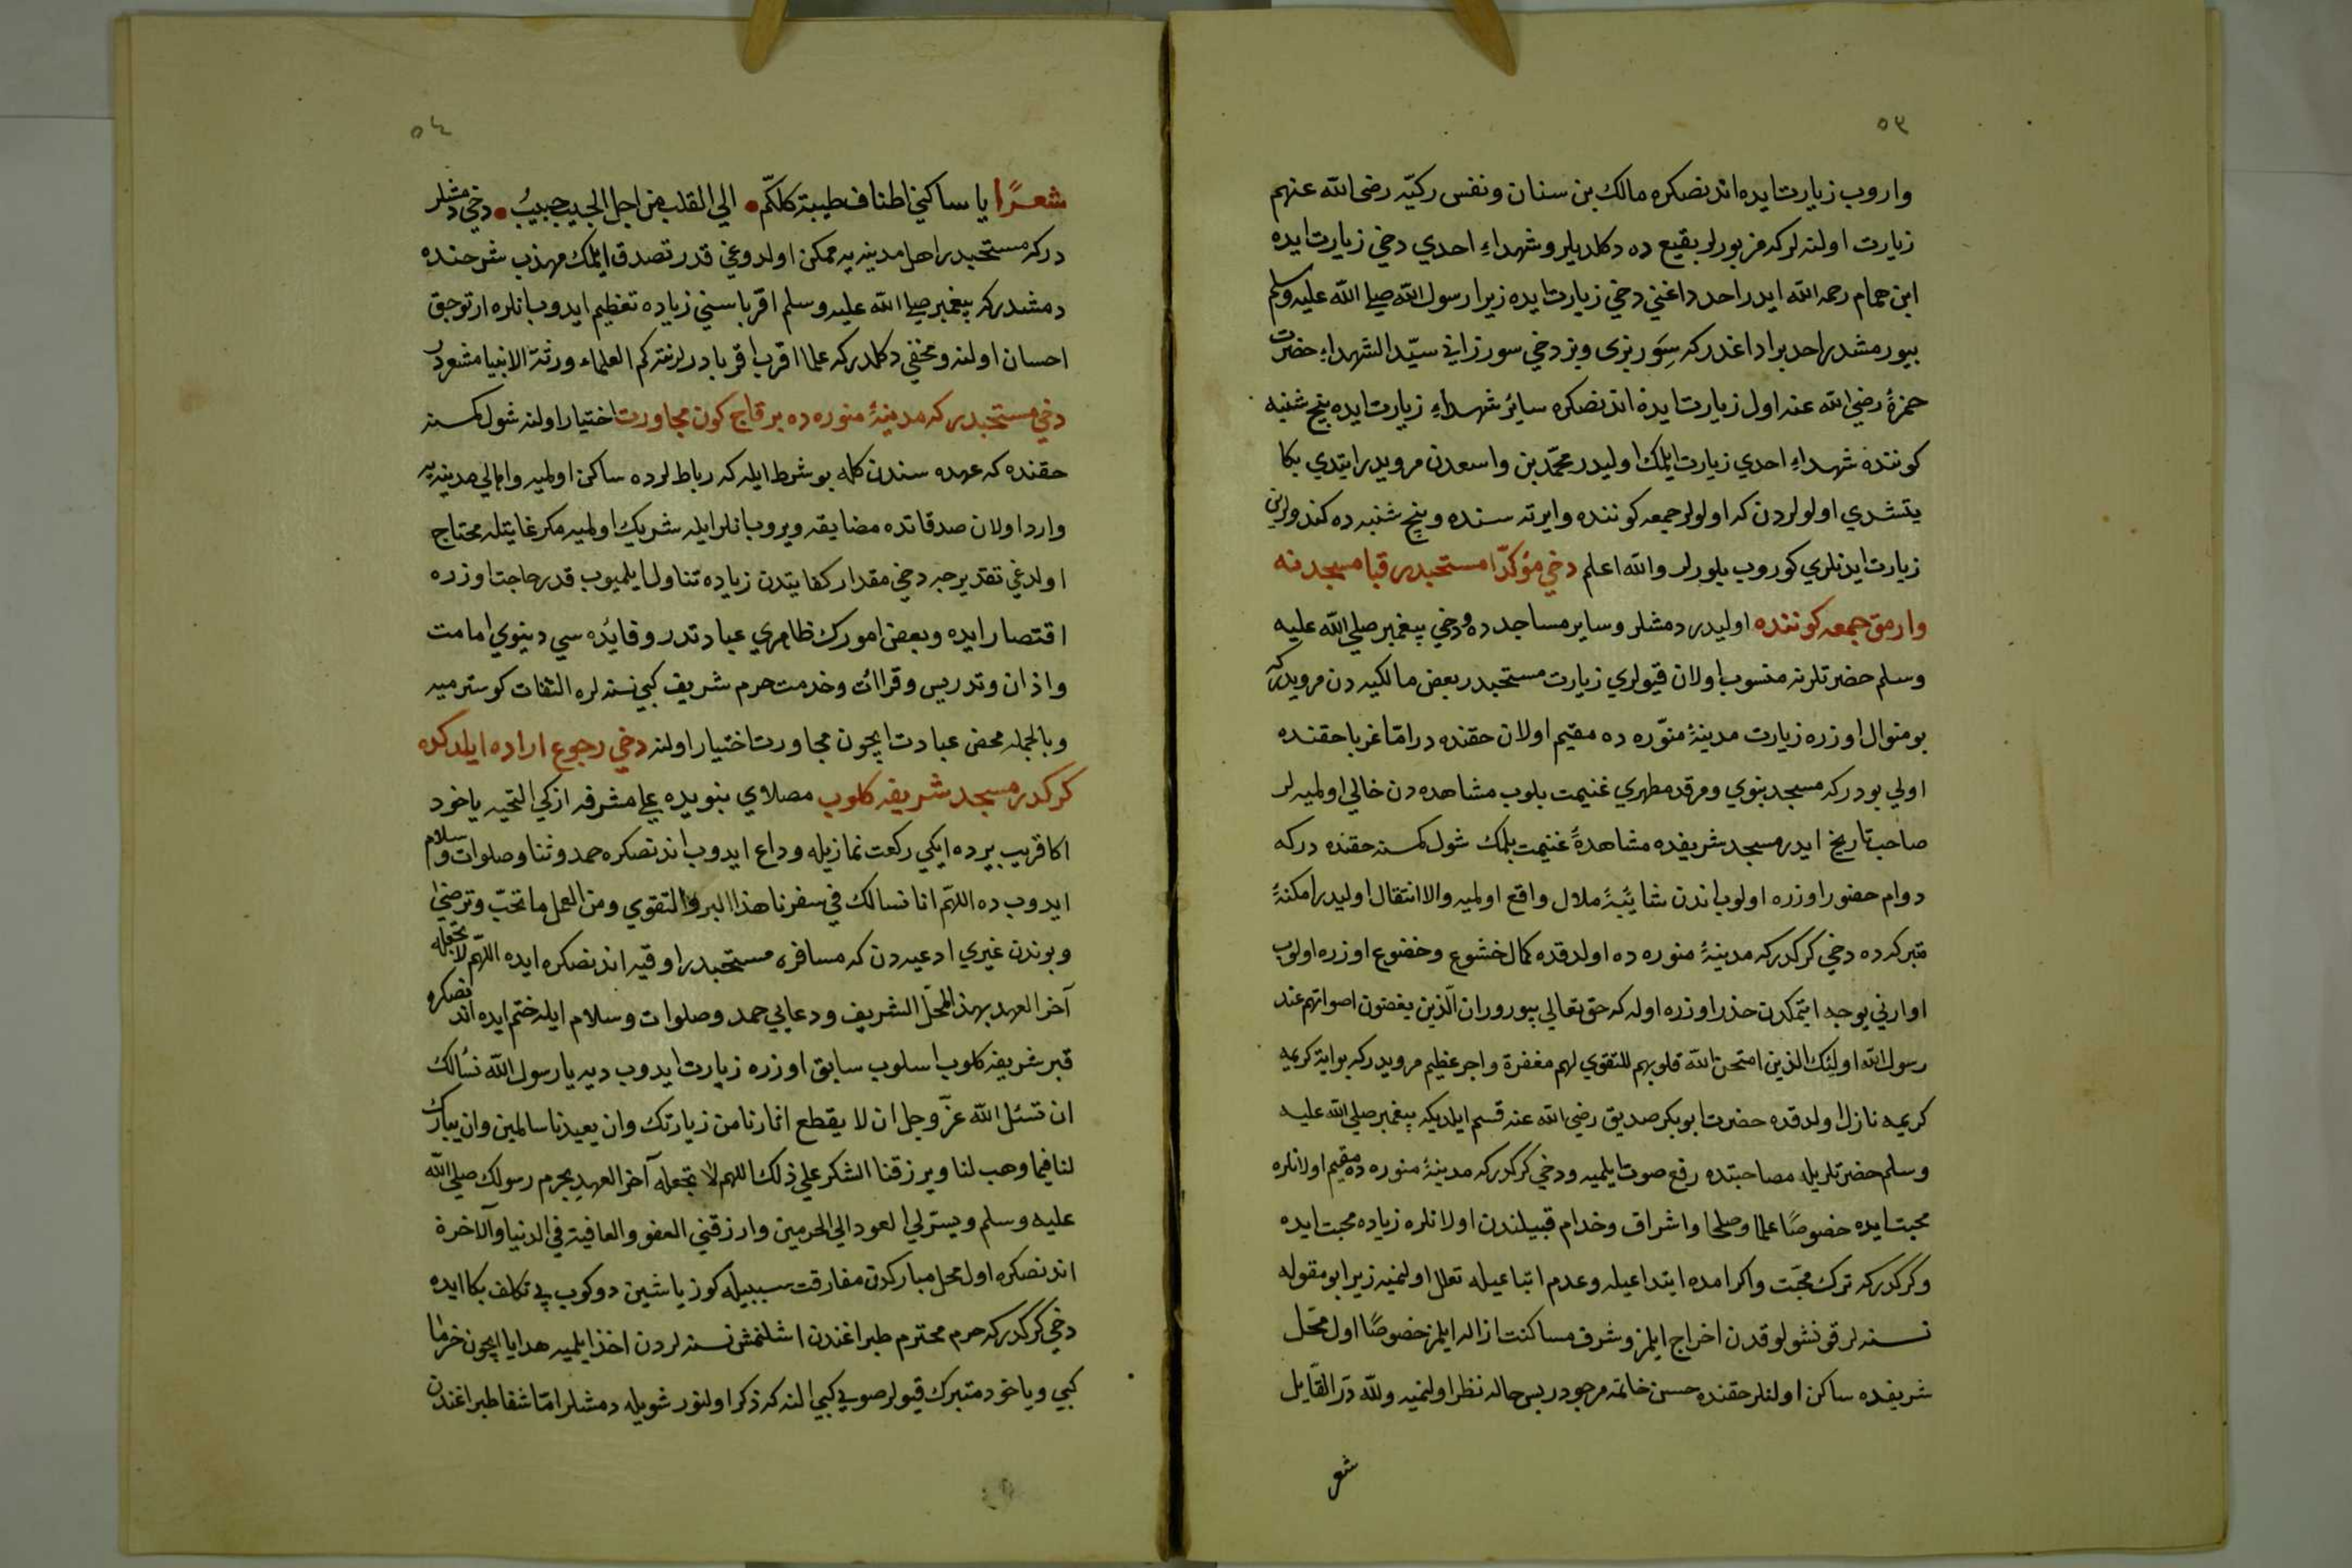 ٥٣
واروب زيارت ايده اندنصكره مالك بن سنان ونفس ركيّه رضى الله عنهم
زيارت اولنه لركه مزبورلر بقيع ده دكلديلر وشهداءِ احدي دخي زيارت ايده
ابن همام رحمه الله ايدر احد داغني دخي زيارت ايده زيرا رسول الله صلي الله عليه وسلم
بيورمشدر احد بر اداغدركه سَوَربزى وبز دخي سورزاني سيّد الشهداءِ حضرت
حمزهٔ رضي الله عنه اول زيارت ايده اندنصكره سائر شهداءِ زيارت ايده پنج شنبه
كوننده شهداءِ احدي زيارت ايلمك اوليدر محمّد بن واسعدن مرويدر ايتدي بكا
يتشدي اولولردن كه اولولر جمعه كوننده وايرته سنده وپنج شنبه ده كندولرين
زيارت ايدنلري كوروب بلورلر والله اعلم دخي مؤكّدا مستحبدر قبا مسجدنه
وارمق جمعه كوننده اوليدر دمشلر وساير مساجد ده ودخي پيغمبر صلي الله عليه
وسلم حضرتلرنه منسوب اولان قيولري زيارت مستحبدر بعض مالكيه دن مرويدركه
بو منوال اوزره زيارت مدينهٔ منوّره ده مقيم اولان حقنده در امّا غربا حقنده
اولي بودركه مسجد بنوي ومرقد مطهري غنيمت بلوب مشاهده دن خالي اولميه لر
صاحب تاريخ ايدر مسجد شريفده مشاهدهٔ غنيمت بلمك شول كمسنه حقنده دركه
دوام حضور اوزره اولوب اندن شائبهٔ ملال واقع اولميه والا انتقال اوليدر امكنهٔ
متبركه ده دخي كركدركه مدينهٔ منوره ده اولدقده كمال خشوع وخضوع اوزره اولوب
اوازني يوجه ايتمكدن حذر اوزره اوله كه حق تعالي بيورور ان الّذين يغضون اصواتهم عند
رسول الله اولئك الذين امتحن الله قلوبهم للتقوي لهم مغفرة واجر عظيم مرويدركه بو اية كريمه
كريمه نازل اولدقده حضرت ابو بكر صديق رضي الله عنه قسم ايلديكه پيغمبر صلي الله عليه
وسلم حضرتلريله مصاحبتده رفع صوت ايلميه ودخي كركدركه مدينهٔ منوره ده مقيم اولانلره
محبت ايده خصوصًا علما وصلحا واشراف وخدام قبيلندن اولانلره زياده محبت ايده
وكركدركه ترك محبّت واكرامده ابتداعيله وعدم اتباعيله تعلل اولنميه زيرا بو مقوله
نسنه لر قونشولوقدن اخراج ايلمز وشرف مساكنت ازاله ايلمز خصوصًا اول محّل
شريفده ساكن اولنلر حقنده حسن خاتمه مرجودر پس حاله نظر اولنميه ولله درّ القآيل
شعر
٥٤
شعرًا يا ساكني اطناف طيبة كلكمّ • الي القلب من اجل الحبيب حبيبُ • دخي دمشلر
دركه مستحبدر اهل مدينه يه ممكن اولدوغي قدر تصدق ايلمك مهذب شرحنده
دمشدركه پيغمبر صلي الله عليه وسلم اقرباسني زياده تعظيم ايدوب انلره ارتوجق
احسان اولنه ومخفي دكلدركه علما اقرب اقربادرلر نته كم العلماء ورثة الانبيا مشعردر
دخي مستحبدركه مدينهٔ منوره ده بر قاچ كون مجاورت اختيار اولنه شول كمسنه
حقنده كه عهده سندن كله بو شرط ايله كه رباطلرده ساكن اولميه واهالي مدينه يه
وارد اولان صدقاتده مضايقه ويروب انلر ايله شريك اولميه مكر غايتله محتاج
اولدغي تقديرجه دخي مقدار كفايتدن زياده تناول ايلميوب قدر حاجت اوزره
اقتصار ايده وبعض امورك ظاهري عبادتدر وفائده سي دينوي امامت
واذان وتدريس وقرائت وخدمت حرم شريف كبي نسنه لره التفات كوسترميه
وبالجمله محض عبادت ايچون مجاورت اختيار اولنه دخي رجوع اراده ايلدكده
كركدر مسجد شريفه كلوب مصلاوي بنويده علي مشرفه ازكي التحيه ياخود
اكا قريب يرده ايكي ركعت نماز يله وداع ايدوب اندنصكره حمد وثنا وصلوات وسلام
ايدوب ده اللهّم انا نسالك في سفرنا هذا البر والتقوي ومن العمل ما تحّب وترضٰي
وبوندن غيري ادعيه دن كه مسافره مستحبدر اوقيه اندنصكره ايده اللهّم لا تجعله
آخر العهد بهذ المحّل الشريف ودعايي حمد وصلوات وسلام ايله ختم ايده اندنصكره
قبر شريفه كلوب اسلوب سابق اوزره زيارت ايدوب ديه يا رسول الله نسٔالك
ان تسئل الله عزّ وجل ان لا يقطع اثارنا من زيارتك وان يعيدنا سالمين وان يبارك
لنا فيما وهب لنا ويرزقنا الشكر علي ذلك اللهم لا تجعله آخر العهد بحرم رسولك صلي الله
عليه وسلم ويسّر لي العود الي الحرمين وارزقني العفو والعافية في الدنيا والآخرة
اندنصكره اول محل مباركدن مفارقت سببيله كوز ياشين دوكوب بي تكلف بكا ايده
دخي كركدركه حرم محترم طبراغندن اشلنمش نسنه لردن اخذ ايلميه هدايا ايچون خرما
كبي ويا خود متبرك قيولر صويي كبي النه كه ذكر اولنور شويله دمشلر امّا شفا طبراغندن